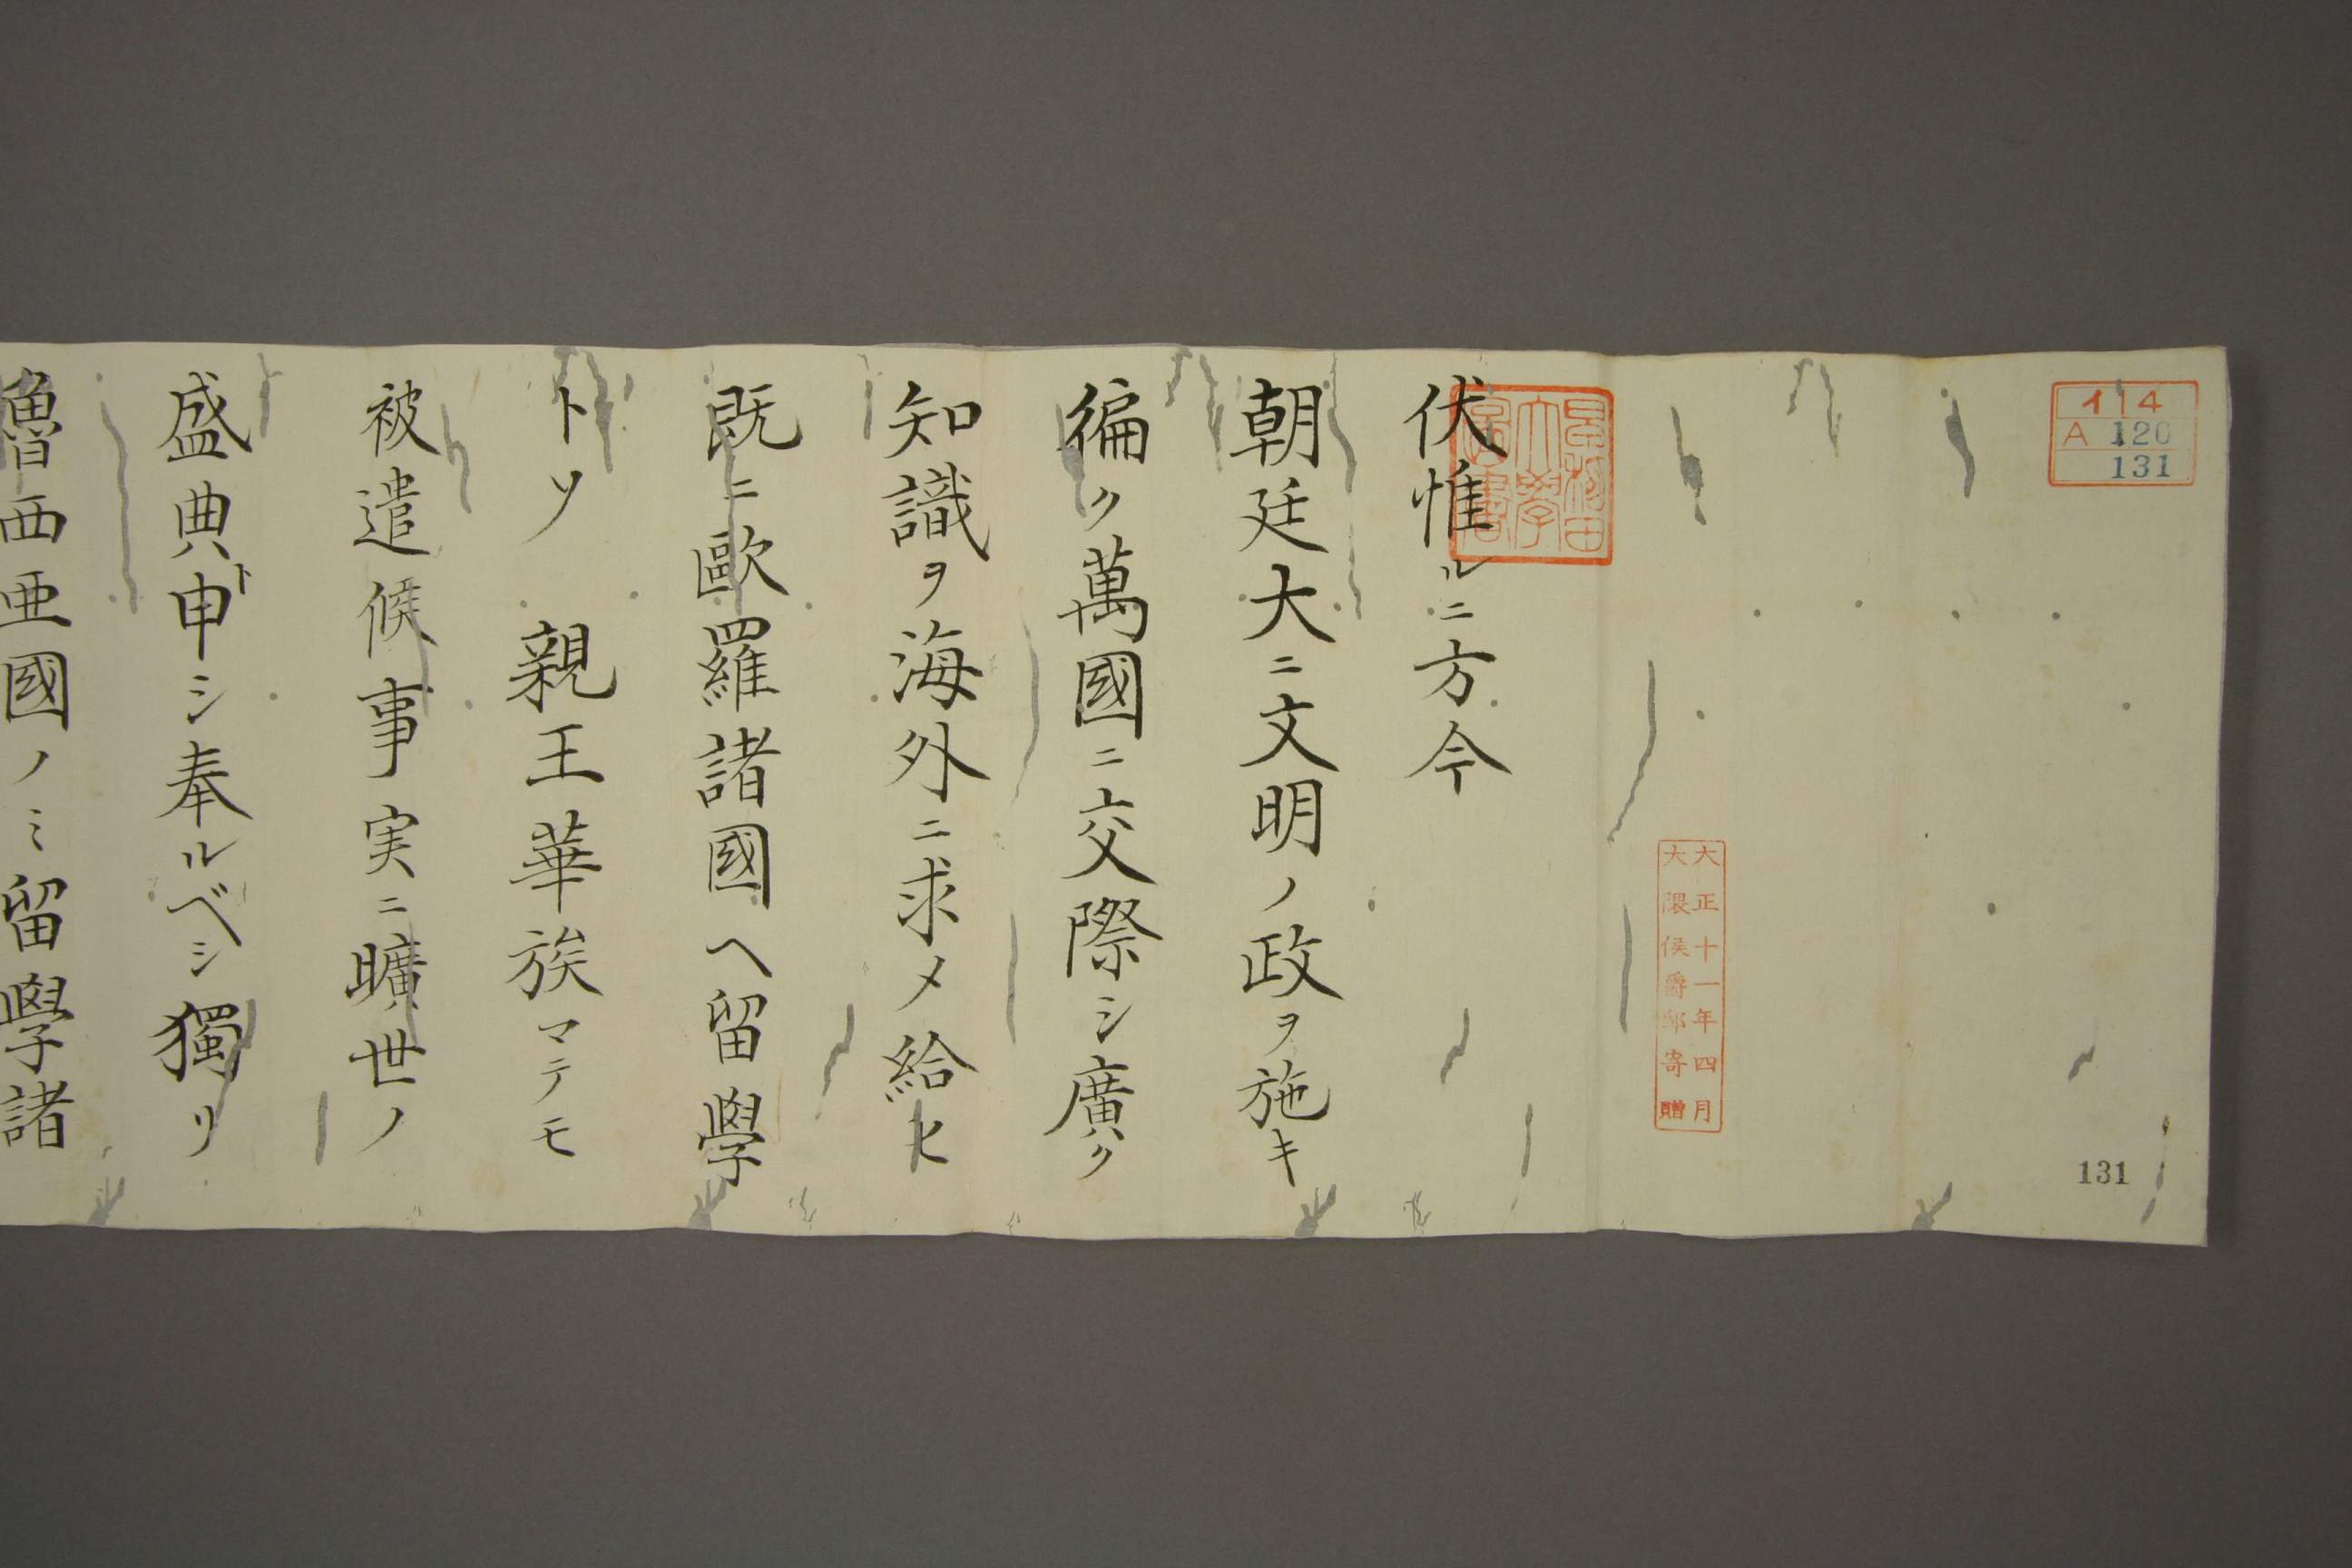 イ14
A 120
131
早稲田
大學
圖書
大正十一年四月
大隈侯爵邸寄贈
131
伏惟ルニ方今
朝廷大ニ文明ノ政ヲ施キ
徧ク萬國ニ交際シ廣ク
知識ヲ海外ニ求メ給ヒ
既ニ歐羅諸國ヘ留學
トソ 親王華族マテモ
被遣候事実ニ曠世ノ
盛典ト申シ奉ルベシ獨リ
魯西亜國ノミ留學諸